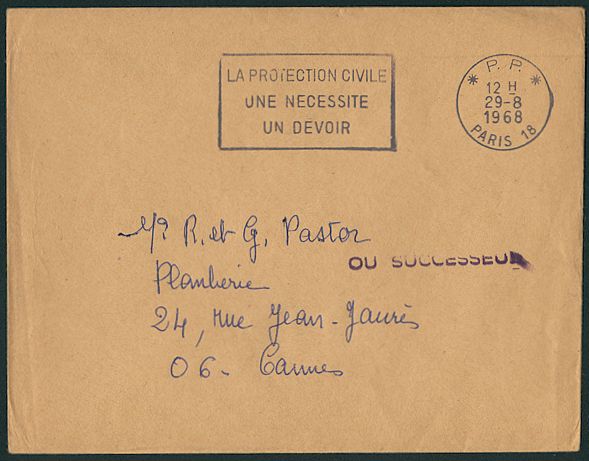 LA PROTECTION CIVILE
UNE NECESSITE
UN DEVOIR
* P.P. *
12 H
29-8
1968
PARIS 18
Mr R. et G. Pastor
OU SUCCESSEUR
Plomberie
24, rue Jean-Jaurès
06- Cannes